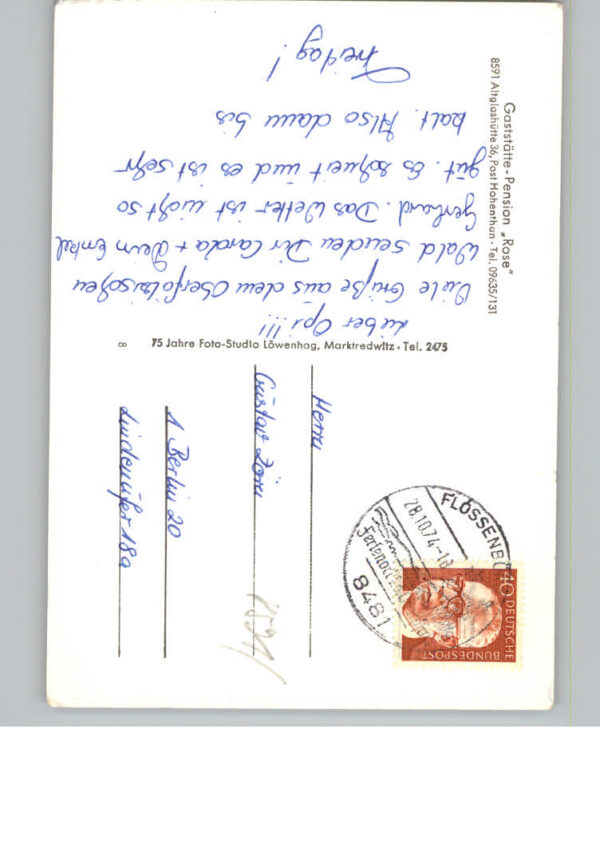 Gaststätte-Pension „Rose"
8591 Altglashütte 36, Post Hohenthan · Tel. 09635/131
Lieber Opi!!!
Viele Grüße aus dem Oberfälzischen
Wald senden Dir Carola + Dein Enkel
Gerhard. Das Wetter ist nicht so
gut. Es schneit und es ist sehr
kalt. Also dann bis
Freitag!
75 Jahre Foto-Studio Löwenhag, Marktredwitz · Tel. 2475
8
FLOSSENBÜ
28.10.74-18
8481
40
DEUTSCHE
BUNDESPOST
Herrn
Gustav
1 Berlin 20
Lindenufer 18a